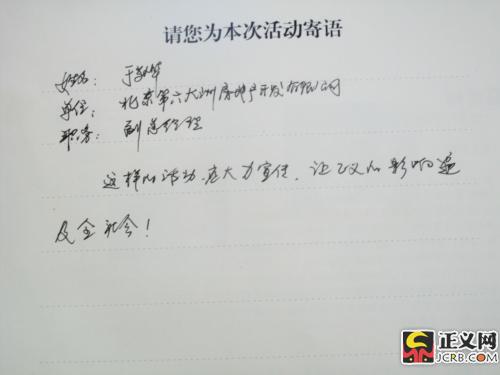 请您为本次活动寄语
姓名：于
单位：北京第六大洲房地产开发有限公司
职务：副总经理
这样的活动应大力宣传，让正义的影响遍
及全社会！
正义网
JCRB.COM